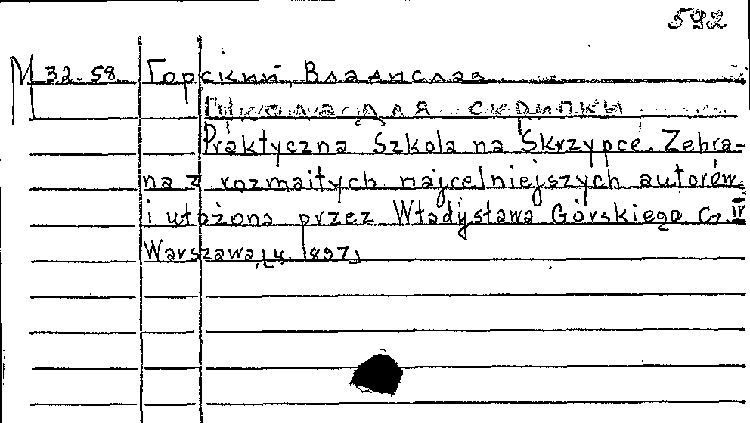 592
М 32-58 Горский, Владислав
Школа для скрипки
Praktyczna Szkoła na Skrzypce. Zebra-
na z rozmaitych najcelniejszych autorów,
i ułożona przez Władysława Górskiego Cz. IV
Warszawa, 1897